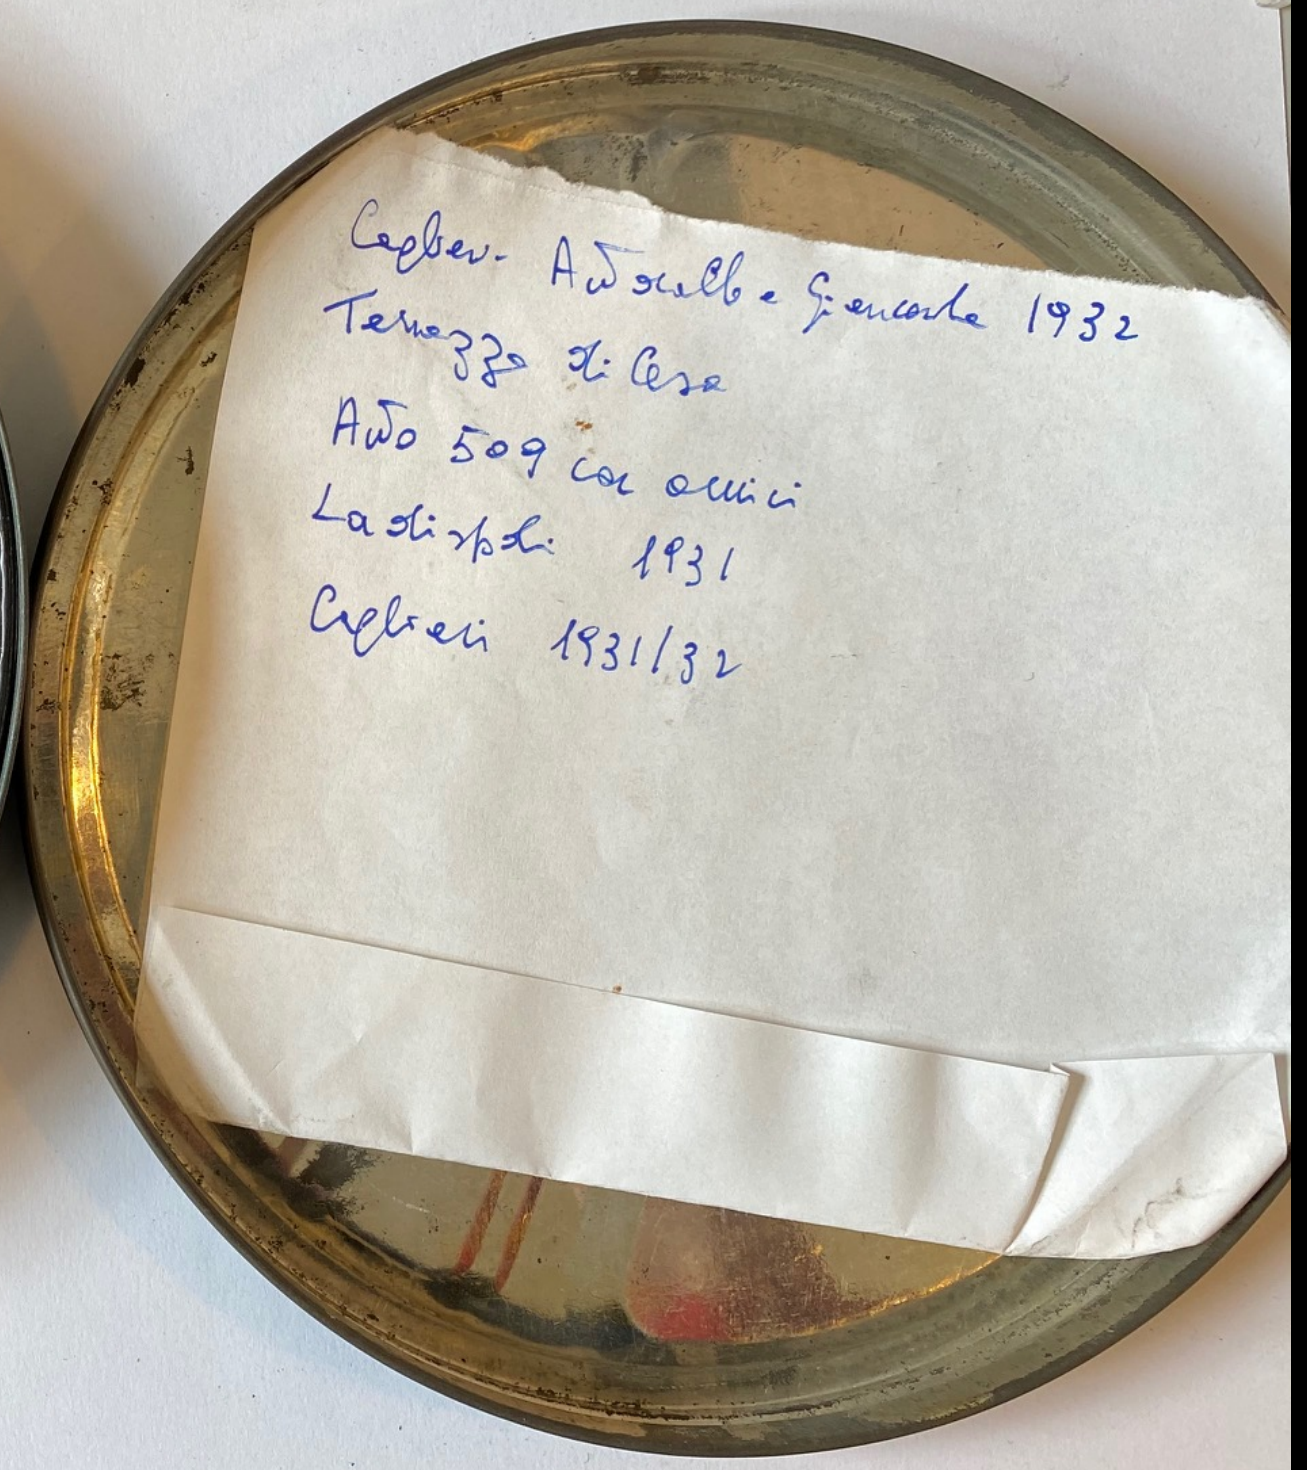 Cagliari - Antonello e Giancarlo 1932
Terrazzo di Casa
Auto 509 con amici
Ladispoli 1931
Cagliari 1931/32